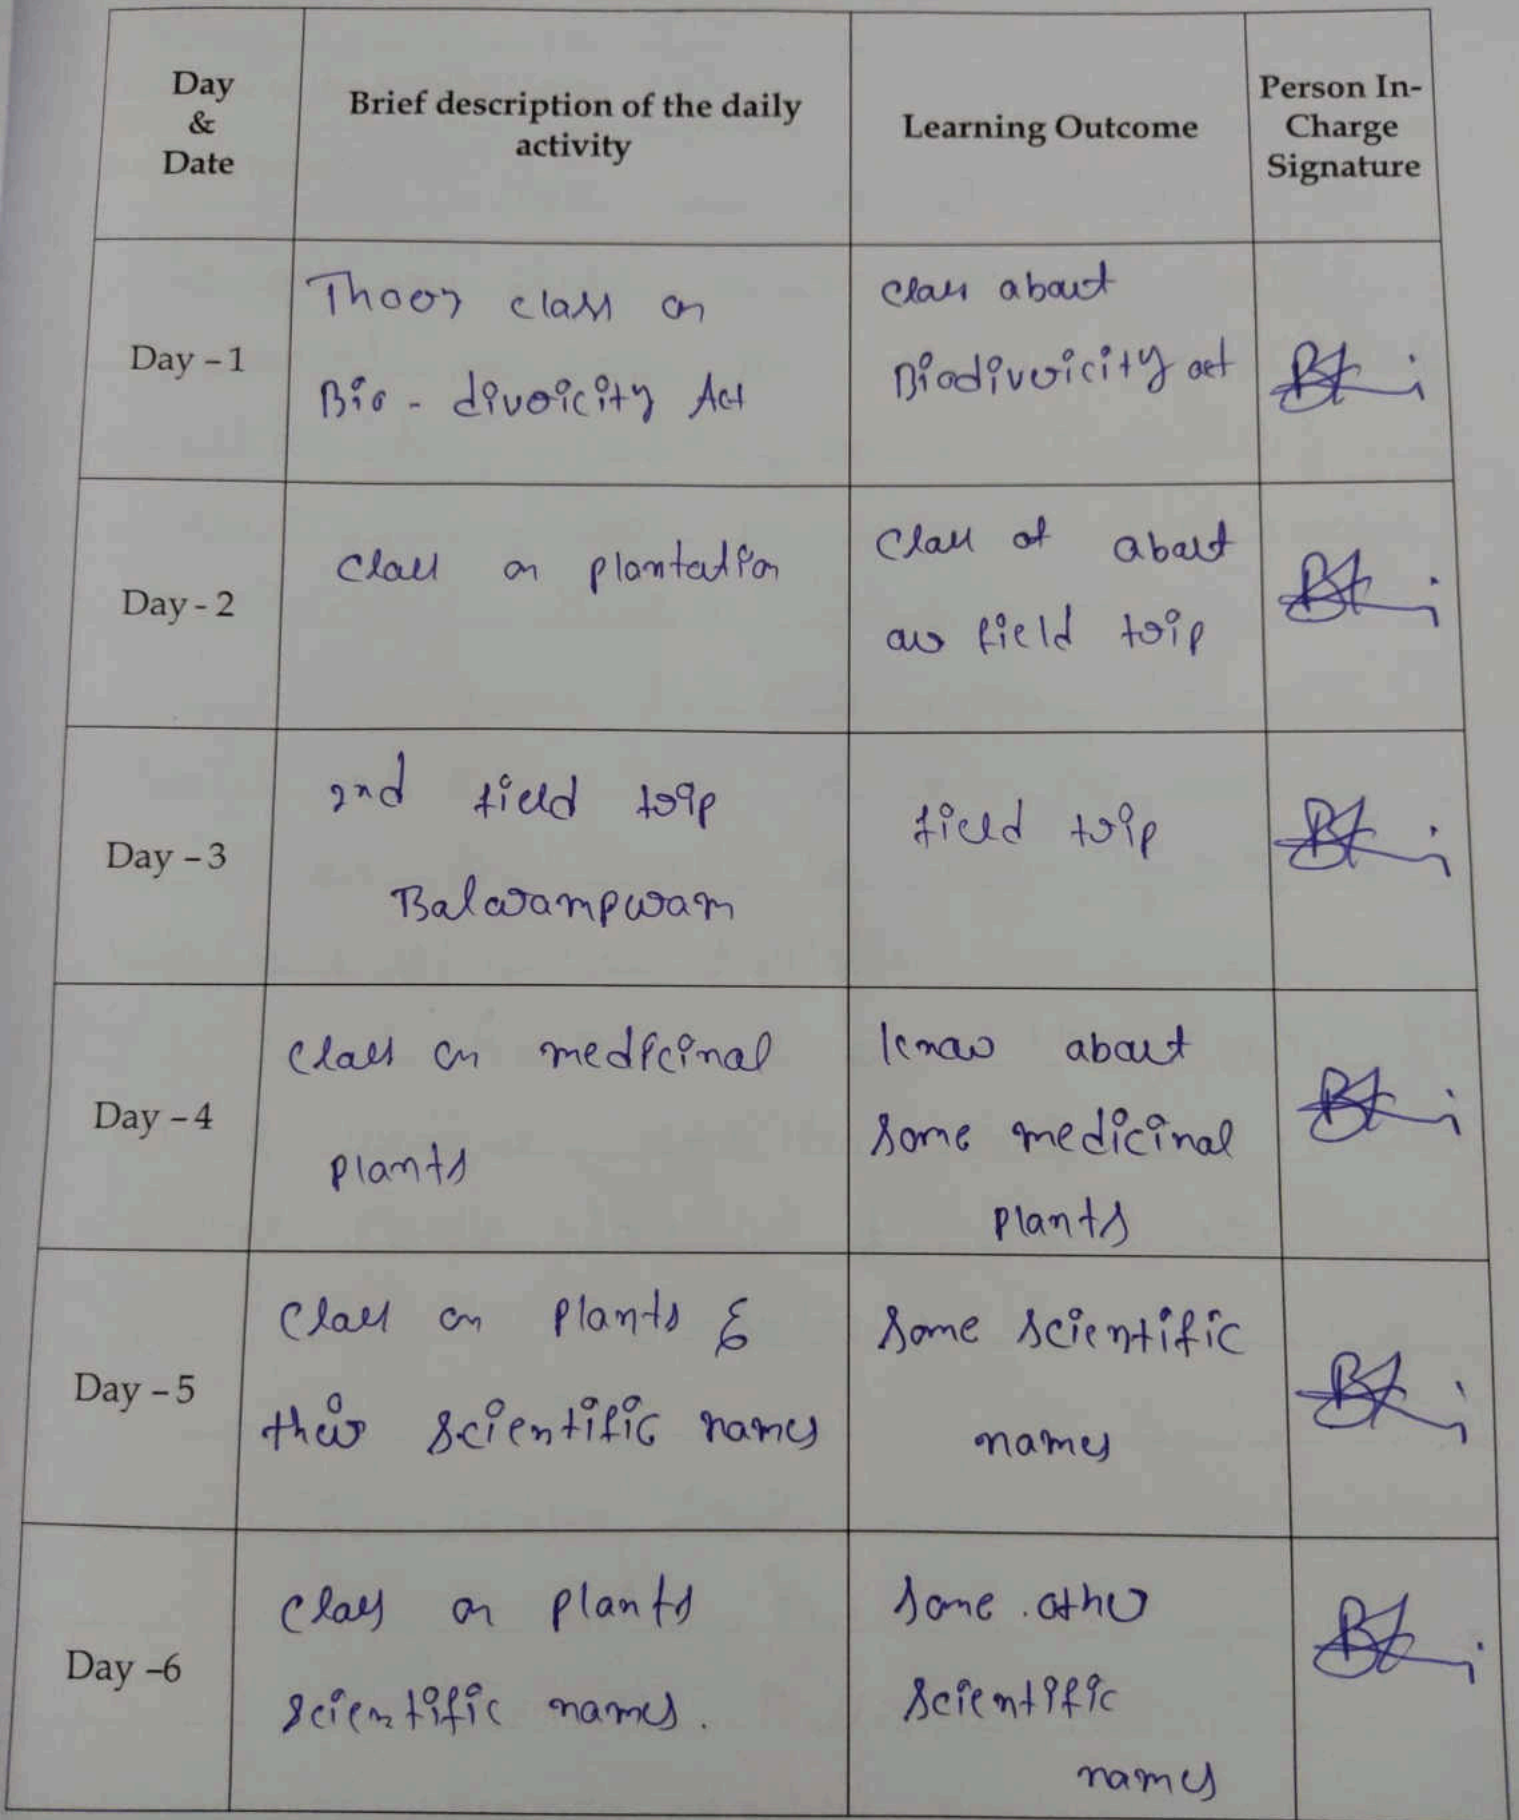 Day
&
Date
Brief description of the daily
activity
Learning Outcome
Person In-
Charge
Signature
Day - 1
Thoery class on
Bio - divercity Act
class about
Biodivercity act
Day - 2
class on plantation
Class of about
our field trip
Day - 3
2nd field trip
Balarampuram
field trip
Day - 4
class on medicinal
plants
know about
some medicinal
plants
Day - 5
Class on plants &
their scientific names
some scientific
names
Day -6
class on plants
scientific names.
some other
scientific
names